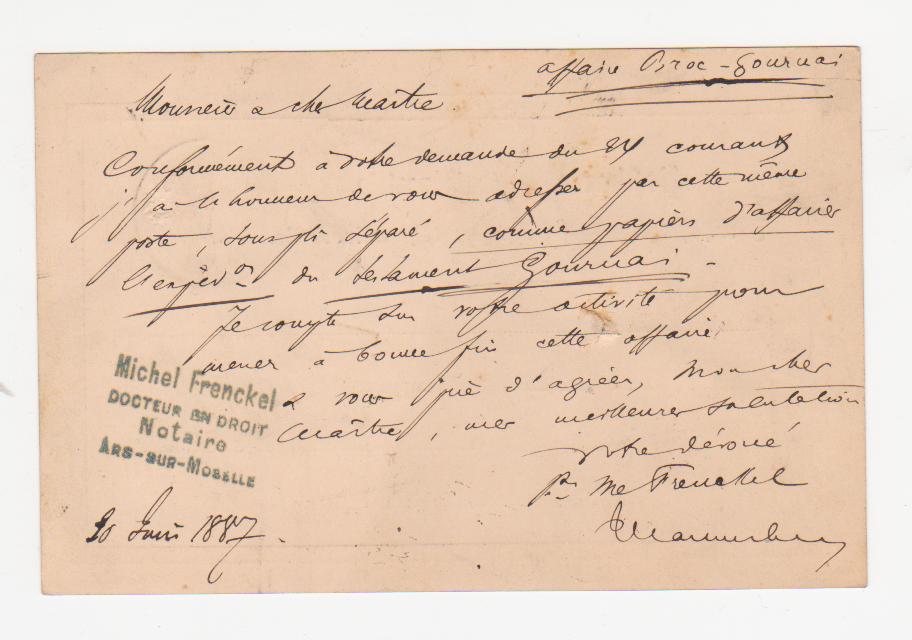 affaire Broc-Gournai
Monsieur & cher Maître
Conformément à votre demande du 24 courant
j'ai l'honneur de vous adresser par cette même
poste, sous pli séparé, comme papiers d'affaires
l'expéd^on du testament Gournai -
Je compte sur votre activité pour
mener à bonne fin cette affaire
& vous prie d'agréer, Mon cher
Maître, mes meilleures salutations
Votre dévoué
Pr Me Frenckel
Michel Frenckel
DOCTEUR EN DROIT
Notaire
ARS-SUR-MOSELLE
30 Juin 1887.